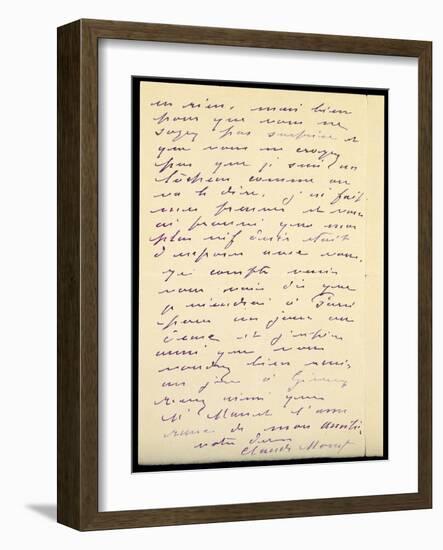 en rien, mais bien
pour que vous ne
soyez pas surprise et
que vous ne croyez
pas que je suis un
lâcheur comme on
va le dire. j'ai fait
mes preuves et vous
ai prouvé que mon
plus vif désir était
d'exposer avec vous.
Je compte
vous voir dès que
je viendrai à Paris
pour un jour ou
deux et j'espère
aussi que vous
voudrez bien venir
un jour à Giverny
ainsi que
Mr Manet
de mon amitié
votre
Claude Monet